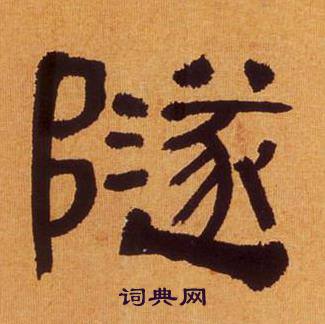 隧
词典网